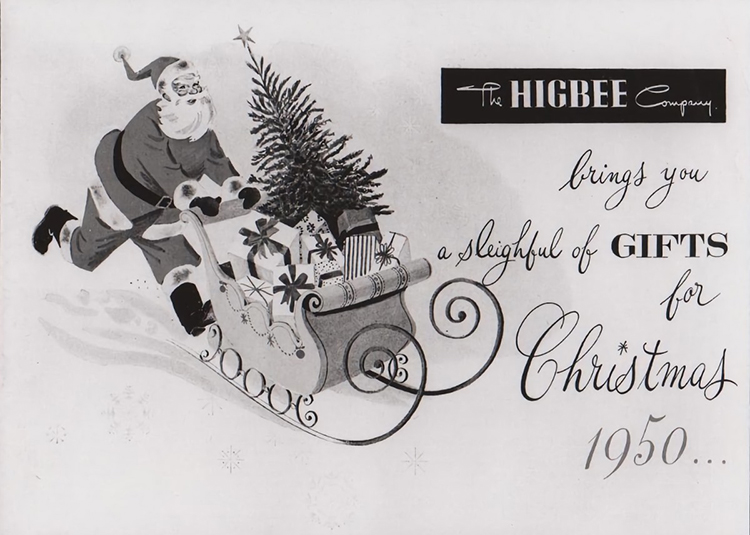 The HIGBEE Company.
brings you
a sleighful of GIFTS
for
Christmas
1950...